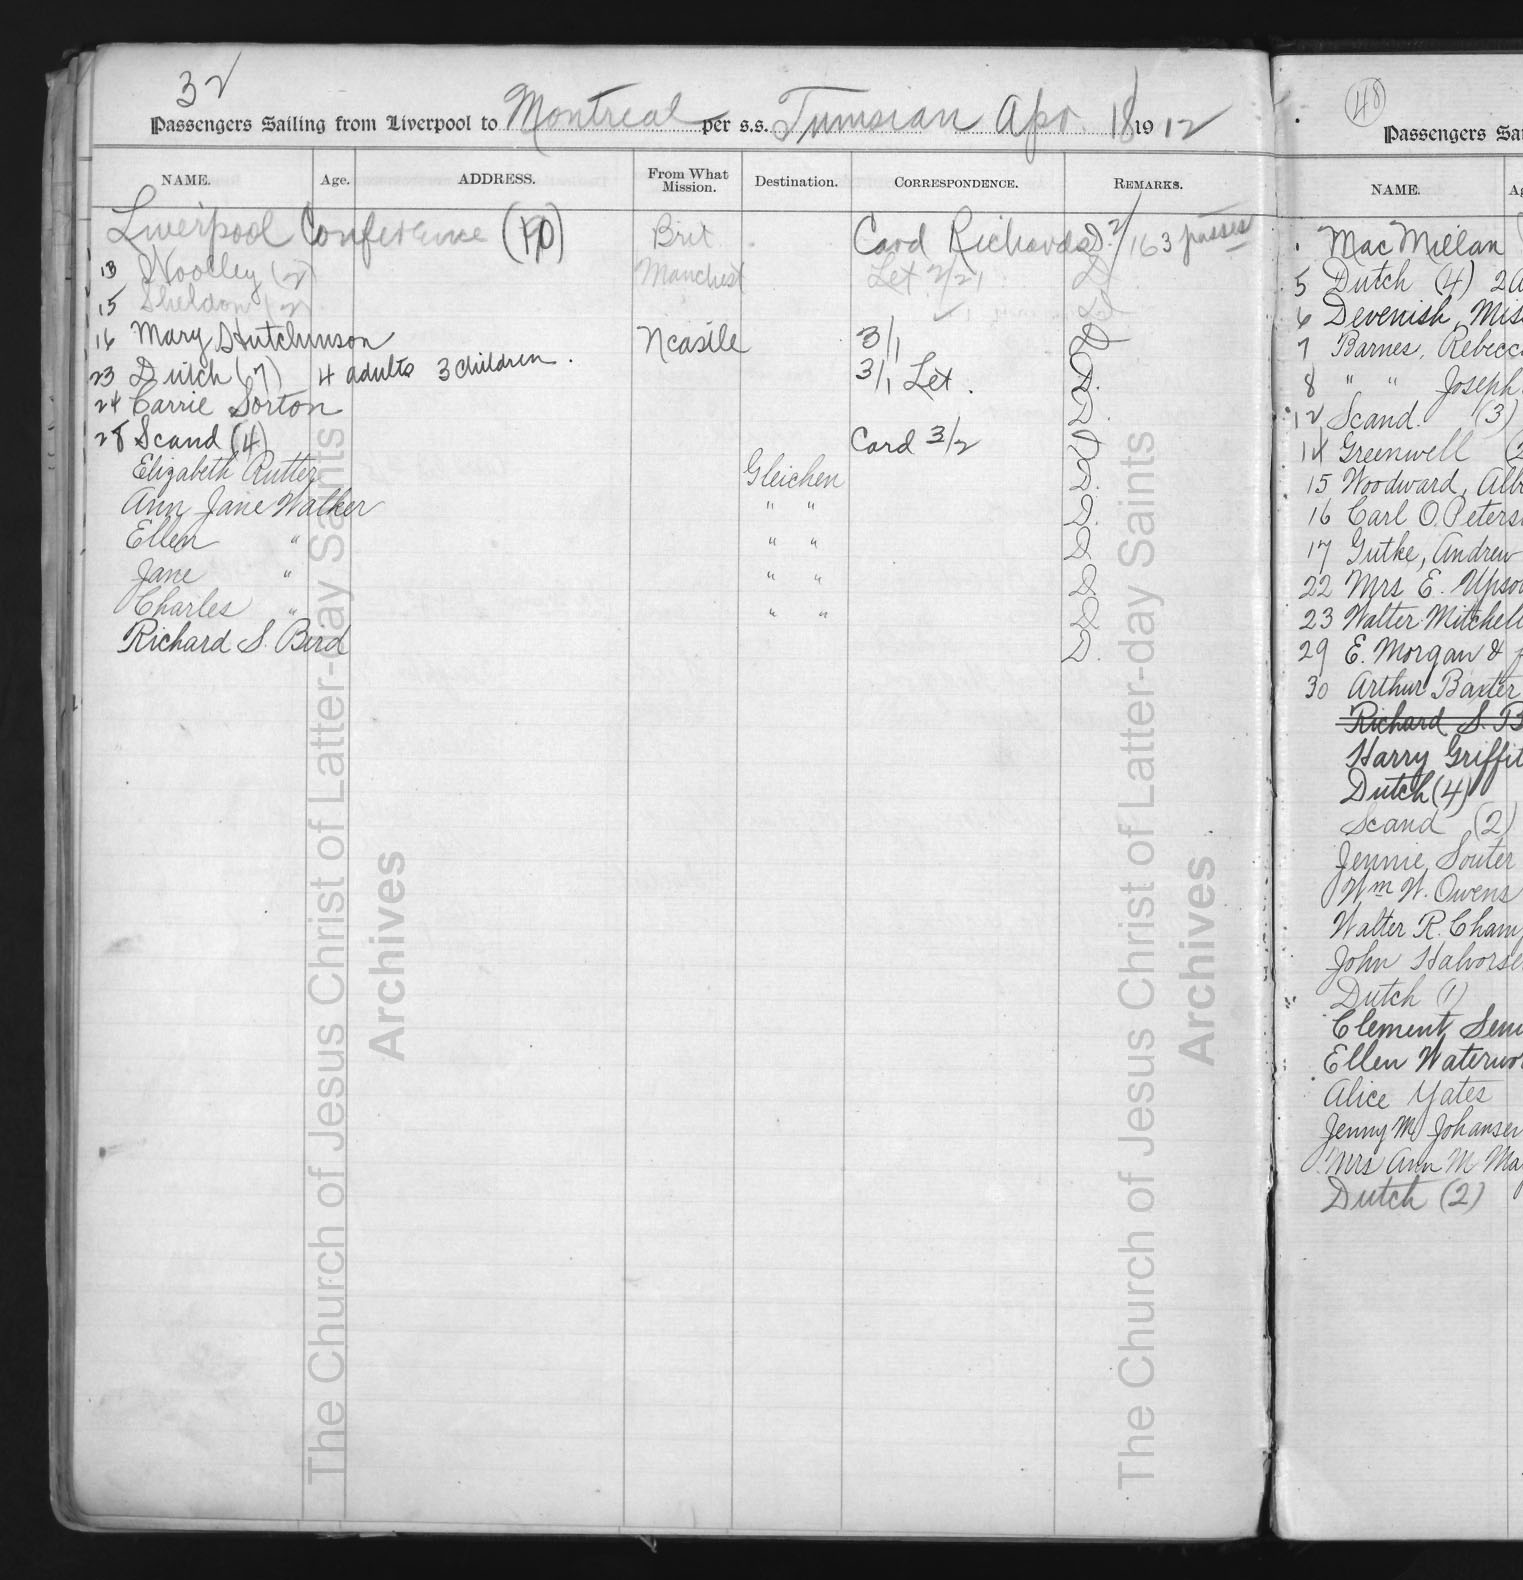 32
Passengers Sailing from Liverpool to Montreal per s.s. Tunisian Apr. 18 1912
NAME. Age. ADDRESS. From What Mission. Destination. CORRESPONDENCE. REMARKS.
Liverpool Conference Brit Card Richards D. 163 passes
13 Woolley (2) Manchest Let 2/21 D
15 Sheldon (2)
16 Mary Hutchinson Ncastle 3/1 D
23 Dutch (7) 4 adults 3 children. 3/1 Let. D.
24 Carrie Sorton D.
28 Scand (4) Card 3/2 D
Elizabeth Rutter Gleichen D.
Ann Jane Walker " " D.
Ellen " " " D
Jane " " " D
Charles " " " D
Richard S. Bird D.
48
Passengers Sai
NAME. Ag
MacMillan
5 Dutch (4) 2 A
6 Devenish, Mis
7 Barnes, Rebecc
8 " " Joseph
12 Scand. (3)
14 Greenwell (2
15 Woodward, Alb
16 Carl O. Peters
17 Gutke, Andrew
22 Mrs E. Upso
23 Walter Mitchell
29 E. Morgan &
30 Arthur Baxter
Richard S. B
Harry Griffit
Dutch (4)
Scand (2)
Jennie Souter
Wm W. Owens
Walter R. Cham
John Halvorse
Dutch (1)
Clement Sen
Ellen Waterwor
Alice Yates
Jenny M Johansen
Mrs Ann M Ma
Dutch (2)
The Church of Jesus Christ of Latter-day Saints
Archives
The Church of Jesus Christ of Latter-day Saints
Archives